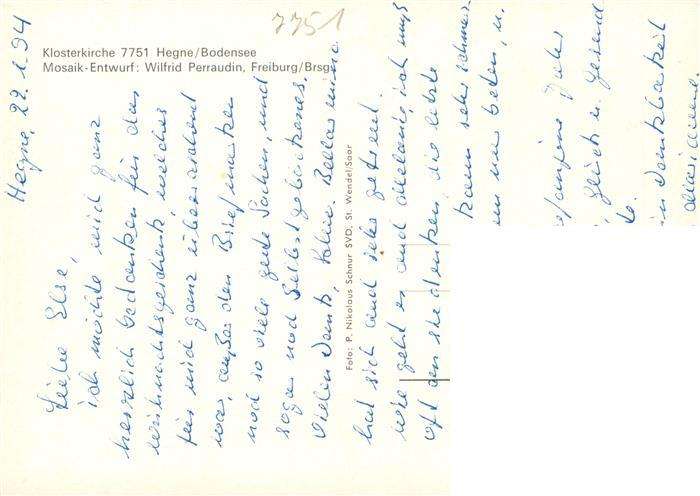 7751
Klosterkirche 7751 Hegne/Bodensee
Mosaik-Entwurf: Wilfrid Perraudin, Freiburg/Brsg.
Foto: P. Nikolaus Schnur SVD, St. Wendel/Saar
Hegne, 22.1.94
Liebe Else,
ich möchte mich ganz
herzlich bedanken für das
Weihnachtsgeschenk, welches
für mich ganz überraschend
war, außer den Briefmarken
noch so viele gute Sachen, und
sogar noch Selbstgebackenes.
Vielen Dank,
hat sich auch sehr gefreut.
Wie geht es auch Melanie, ich muß
oft an sie denken, die letzte
kann sehr schmer
nur beten, u.
efangene Jahr
Glück u. Gesund
in Dankbarkeit